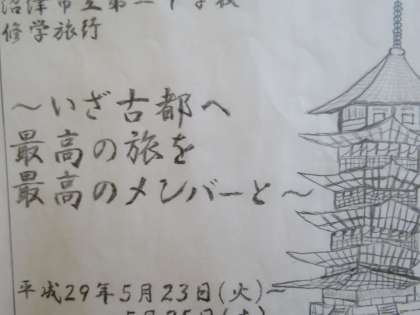 沼津市立第一中学校
修学旅行
～いざ古都へ
最高の旅を
最高のメンバーと～
平成29年5月23日(火)～
5月25日(木)